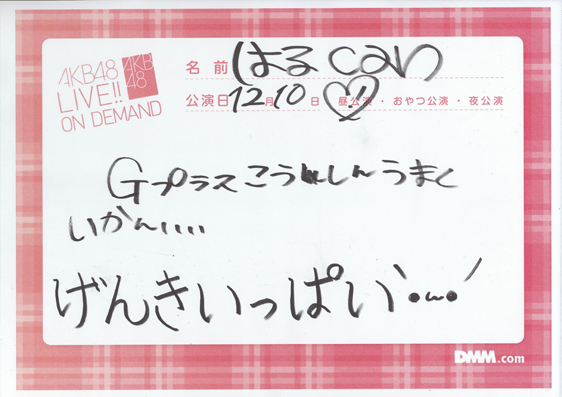 AKB48
LIVE!!
ON DEMAND
AKB
48
名前 はるcan
公演日 12月10日 昼公演・おやつ公演・夜公演
Gプラスこうしんうまく
いかん....
げんきいっぱい
DMM.com